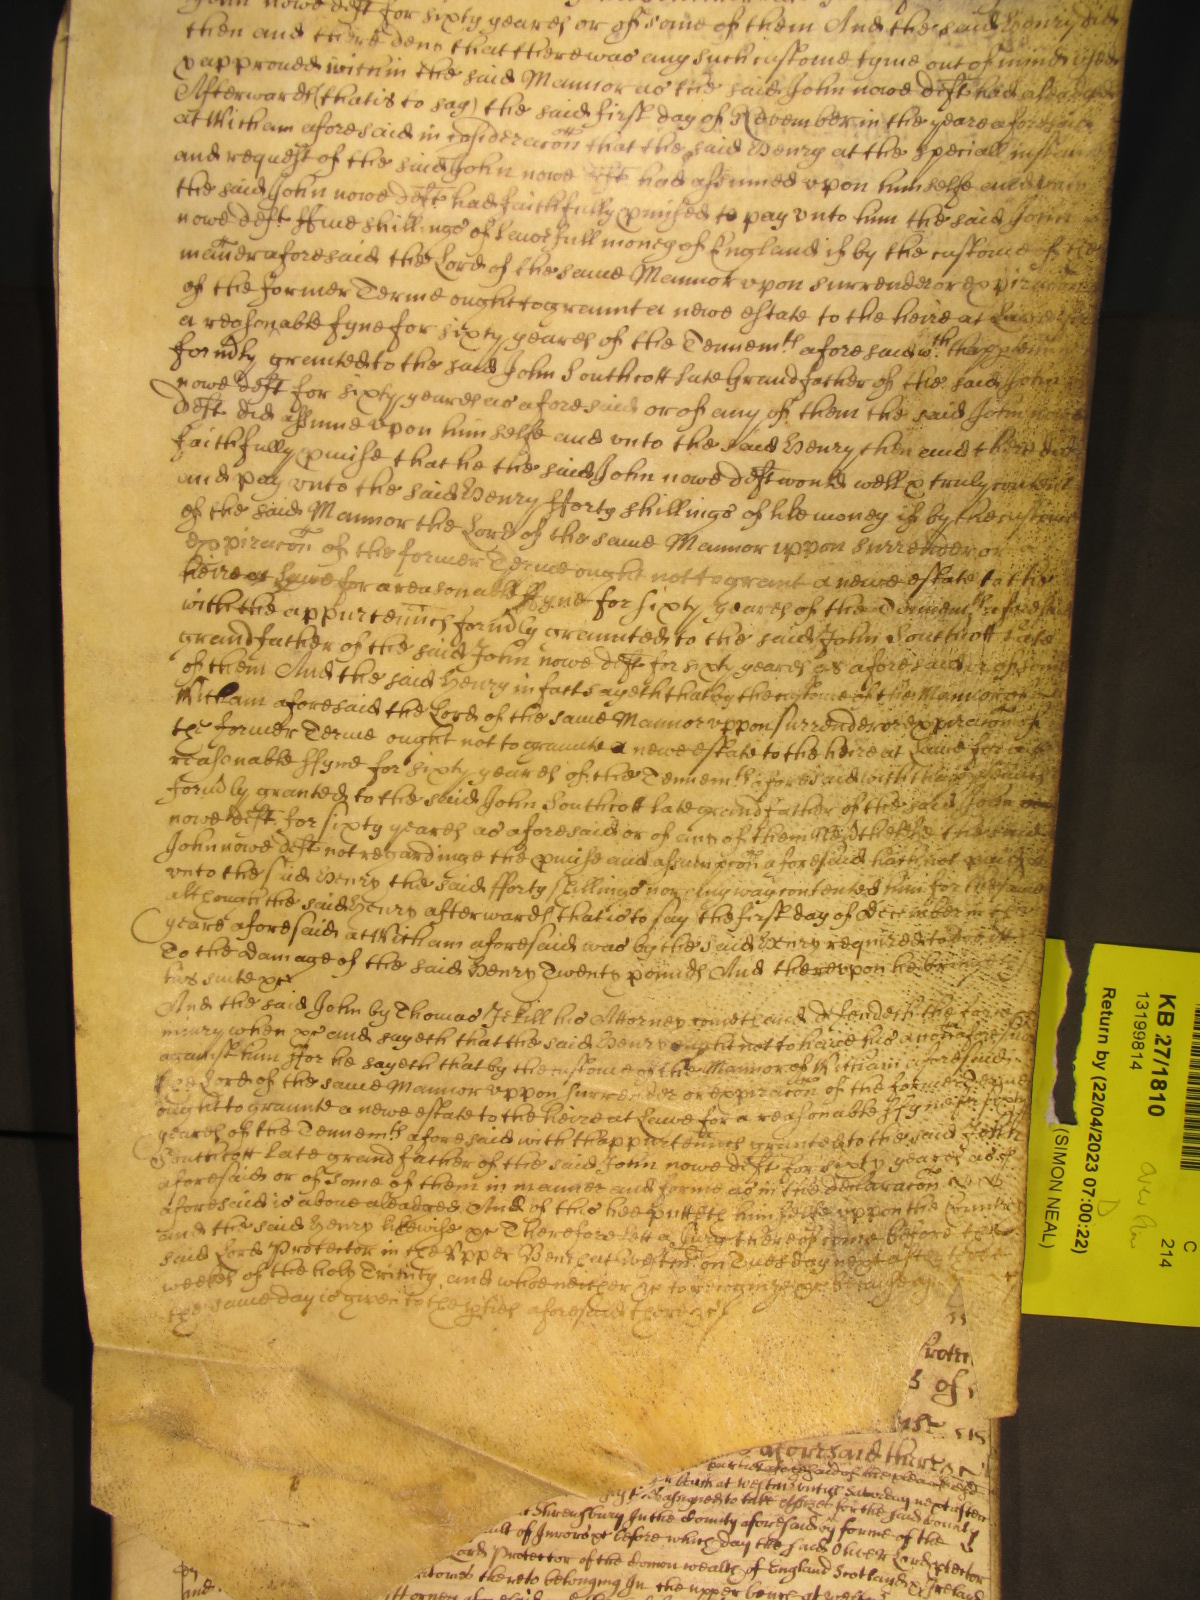 John nowe deft for sixty yeares or of some of them And the said Henry did
then and there deny that there was any such custome tyme out of mind used
& approued within the said Mannor as the said John nowe deft had alleadged
Afterwards (that is to say) the said first day of November in the yeare aforesaid
at Witham aforesaid in consideracon that the said Henry at the speciall instance
and request of the said John nowe deft had assumed vpon himselfe and vnto
the said John nowe deft had faithfully pmised to pay vnto him the said John
nowe deft ffiue shillings of lawfull money of England if by the custome of the
manner aforesaid the Lord of the same Mannor vpon surrender or expiracon
of the former Terme ought to graunt a newe estate to the heire at Lawe for
a reasonable fyne for sixty yeares of the Tennemts aforesaid wth thapp
formdly granted to the said John Southcott late Grandfather of the said John
nowe deft for sixty yeares as aforesaid or of any of them the said John nowe
deft did assume vpon himselfe and vnto the said Henry then and there did
faithfully pmise that he the said John nowe deft would well & truly content
and pay vnto the said Henry fforty shillings of like money if by the custome
of the said Mannor the Lord of the same Mannor vppon surrender or
expiracon of the former Terme ought not to grant a newe estate to the
heire at Lawe for a reasonable ffyne for sixty yeares of the Tennemts aforesaid
with the appurtennces formdly graunted to the said John Southcott late
grandfather of the said John nowe deft for sixty yeares as aforesaid or of some
of them And the said Henry in fact sayeth that by the custome of the Mannor of
Witham aforesaid the Lord of the same Mannor vppon surrender or expiracon of
the former Terme ought not to graunte a newe estate to the heire at Lawe for a
reasonable ffyne for sixty yeares of the Tennemts aforesaid with thappurtennces
formdly granted to the said John Southcott late grandfather of the said John
nowe deft for sixty yeares as aforesaid or of any of them Neverthelesse the said
John nowe deft not regardinge the pmise and assumpcon aforesaid hath not paid
vnto the said Henry the said fforty shillings nor any way contented him for the same
although the said Henry afterwards that is to say the first day of December in the
yeare aforesaid at Witham aforesaid was by the said Henry required to doe it
To the damage of the said Henry Twenty pounds And therevpon he bringeth
his suite &c
And the said John by Thomas Jekill his Attorney cometh and defendeth the force
iniury when &c and sayeth that the said Henry ought not to have his accon aforesaid
against him ffor he sayeth that by the custome of the Mannor of Witham aforesaid
the Lord of the same Mannor vppon surrender or expiracon of the former Terme
ought to graunte a newe estate to the heire at Lawe for a reasonable ffyne for sixty
yeares of the Tennemts aforesaid with thappurtennces granted to the said John
Southcott late grandfather of the said John nowe deft for sixty yeares as
aforesaid or of some of them in manner and forme as in the declaracon
aforesaid is aboue alleadged And of this hee putteth himselfe vppon the Country
and the said Henry likewise &c Therefore lett a Jury thereof come before the
said Lord Protector in the Vpper Bench at Westmr on Tuesday next after three
weekes of the holy Trinity and whoe neither &c to recognize &c because
the same day is given to the pties aforesaid there &c
Protec
of
aforesaid
at Westmr vntill Saturday next after
assigned to take Assizes for the said County
Shrewsbury In the County aforesaid by forme of the
before which day the said Oliver Lord ptector
Lord Protector of the Comon wealth of England Scotland & Ireland
thereto belonging In the upper bench at Westmr
Attorney aforesaid
KB 27/1810
13199814
C
214
Return by (22/04/2023 07:00:22)
(SIMON NEAL)